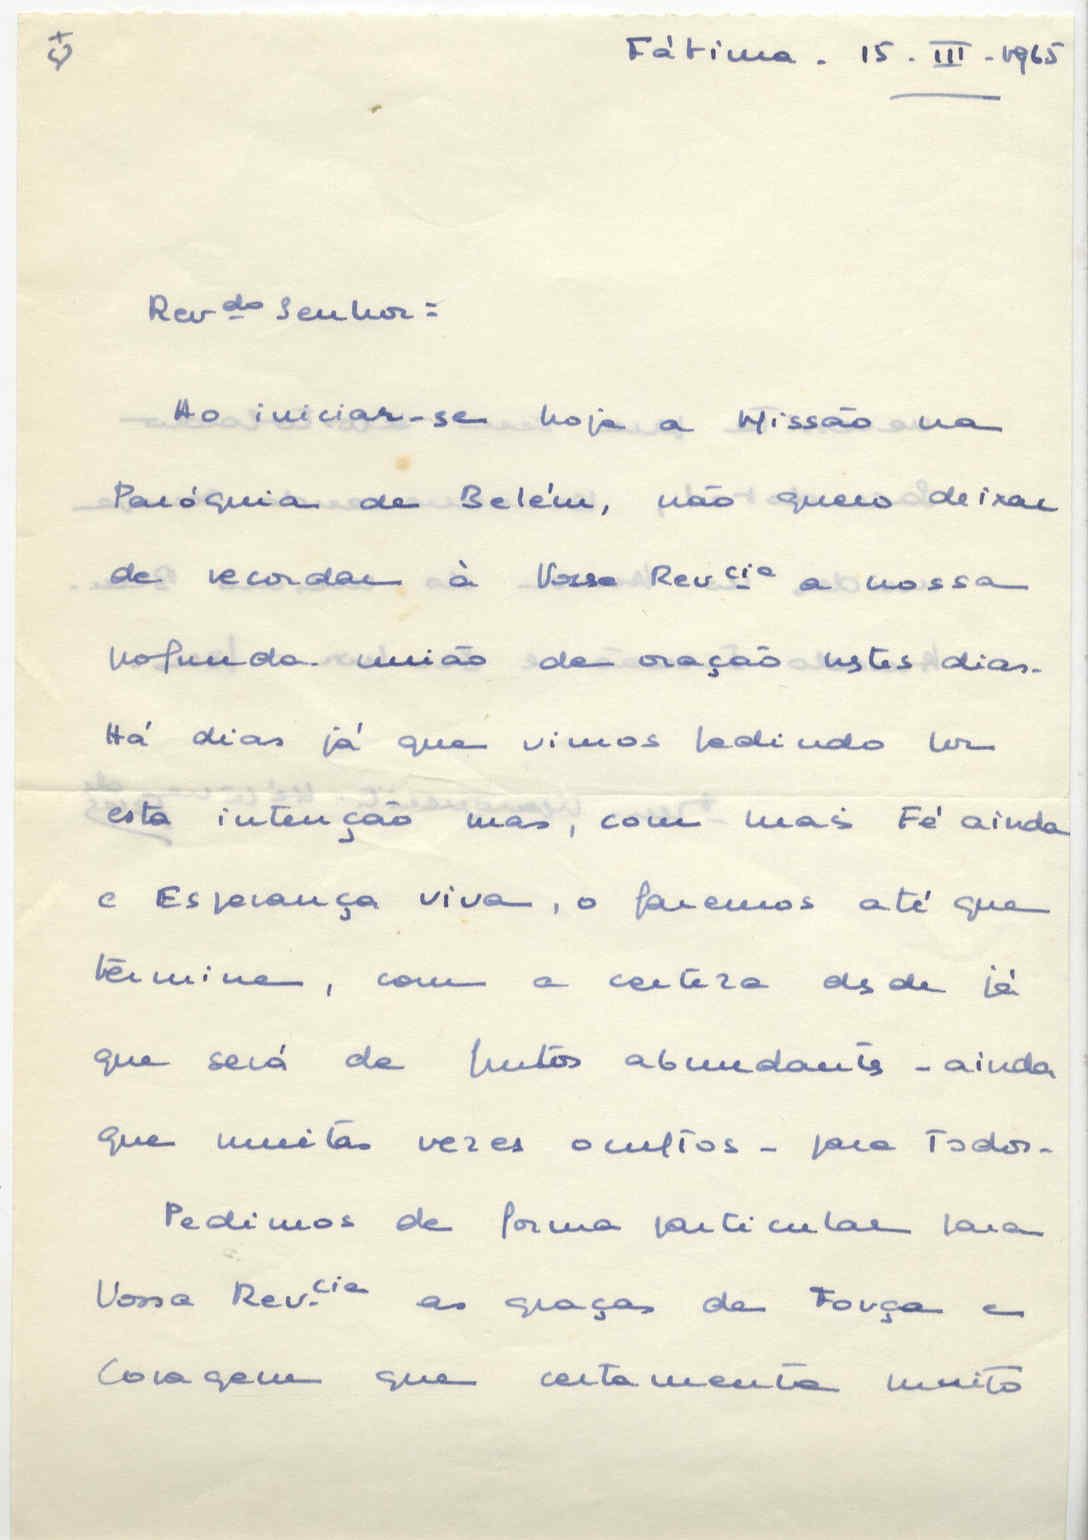 Fátima. 15. III - 1965
Rev.do Senhor:
Ao iniciar-se hoje a Missão na
Paróquia de Belém, não quero deixar
de recordar à Vossa Rev.cia a nossa
profunda união de oração nestes dias.
Há dias já que vimos pedindo por
esta intenção mas, com mais Fé ainda
e Esperança viva, o faremos até que
termine, com a certeza desde já
que será de frutos abundantes - ainda
que muitas vezes ocultos - para todos.
Pedimos de forma particular para
Vossa Rev.cia as graças de Força e
Coragem que certamente muito